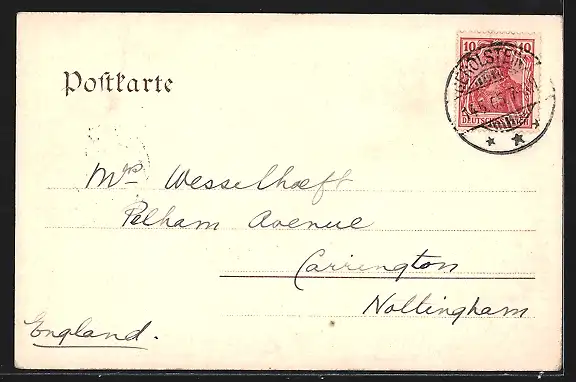 10 10
DEUTSCHES REICH
GEROLSTEIN
Postkarte
Mrs Wesselhoeft
Pelham Avenue
Carrington
Nottingham
England.